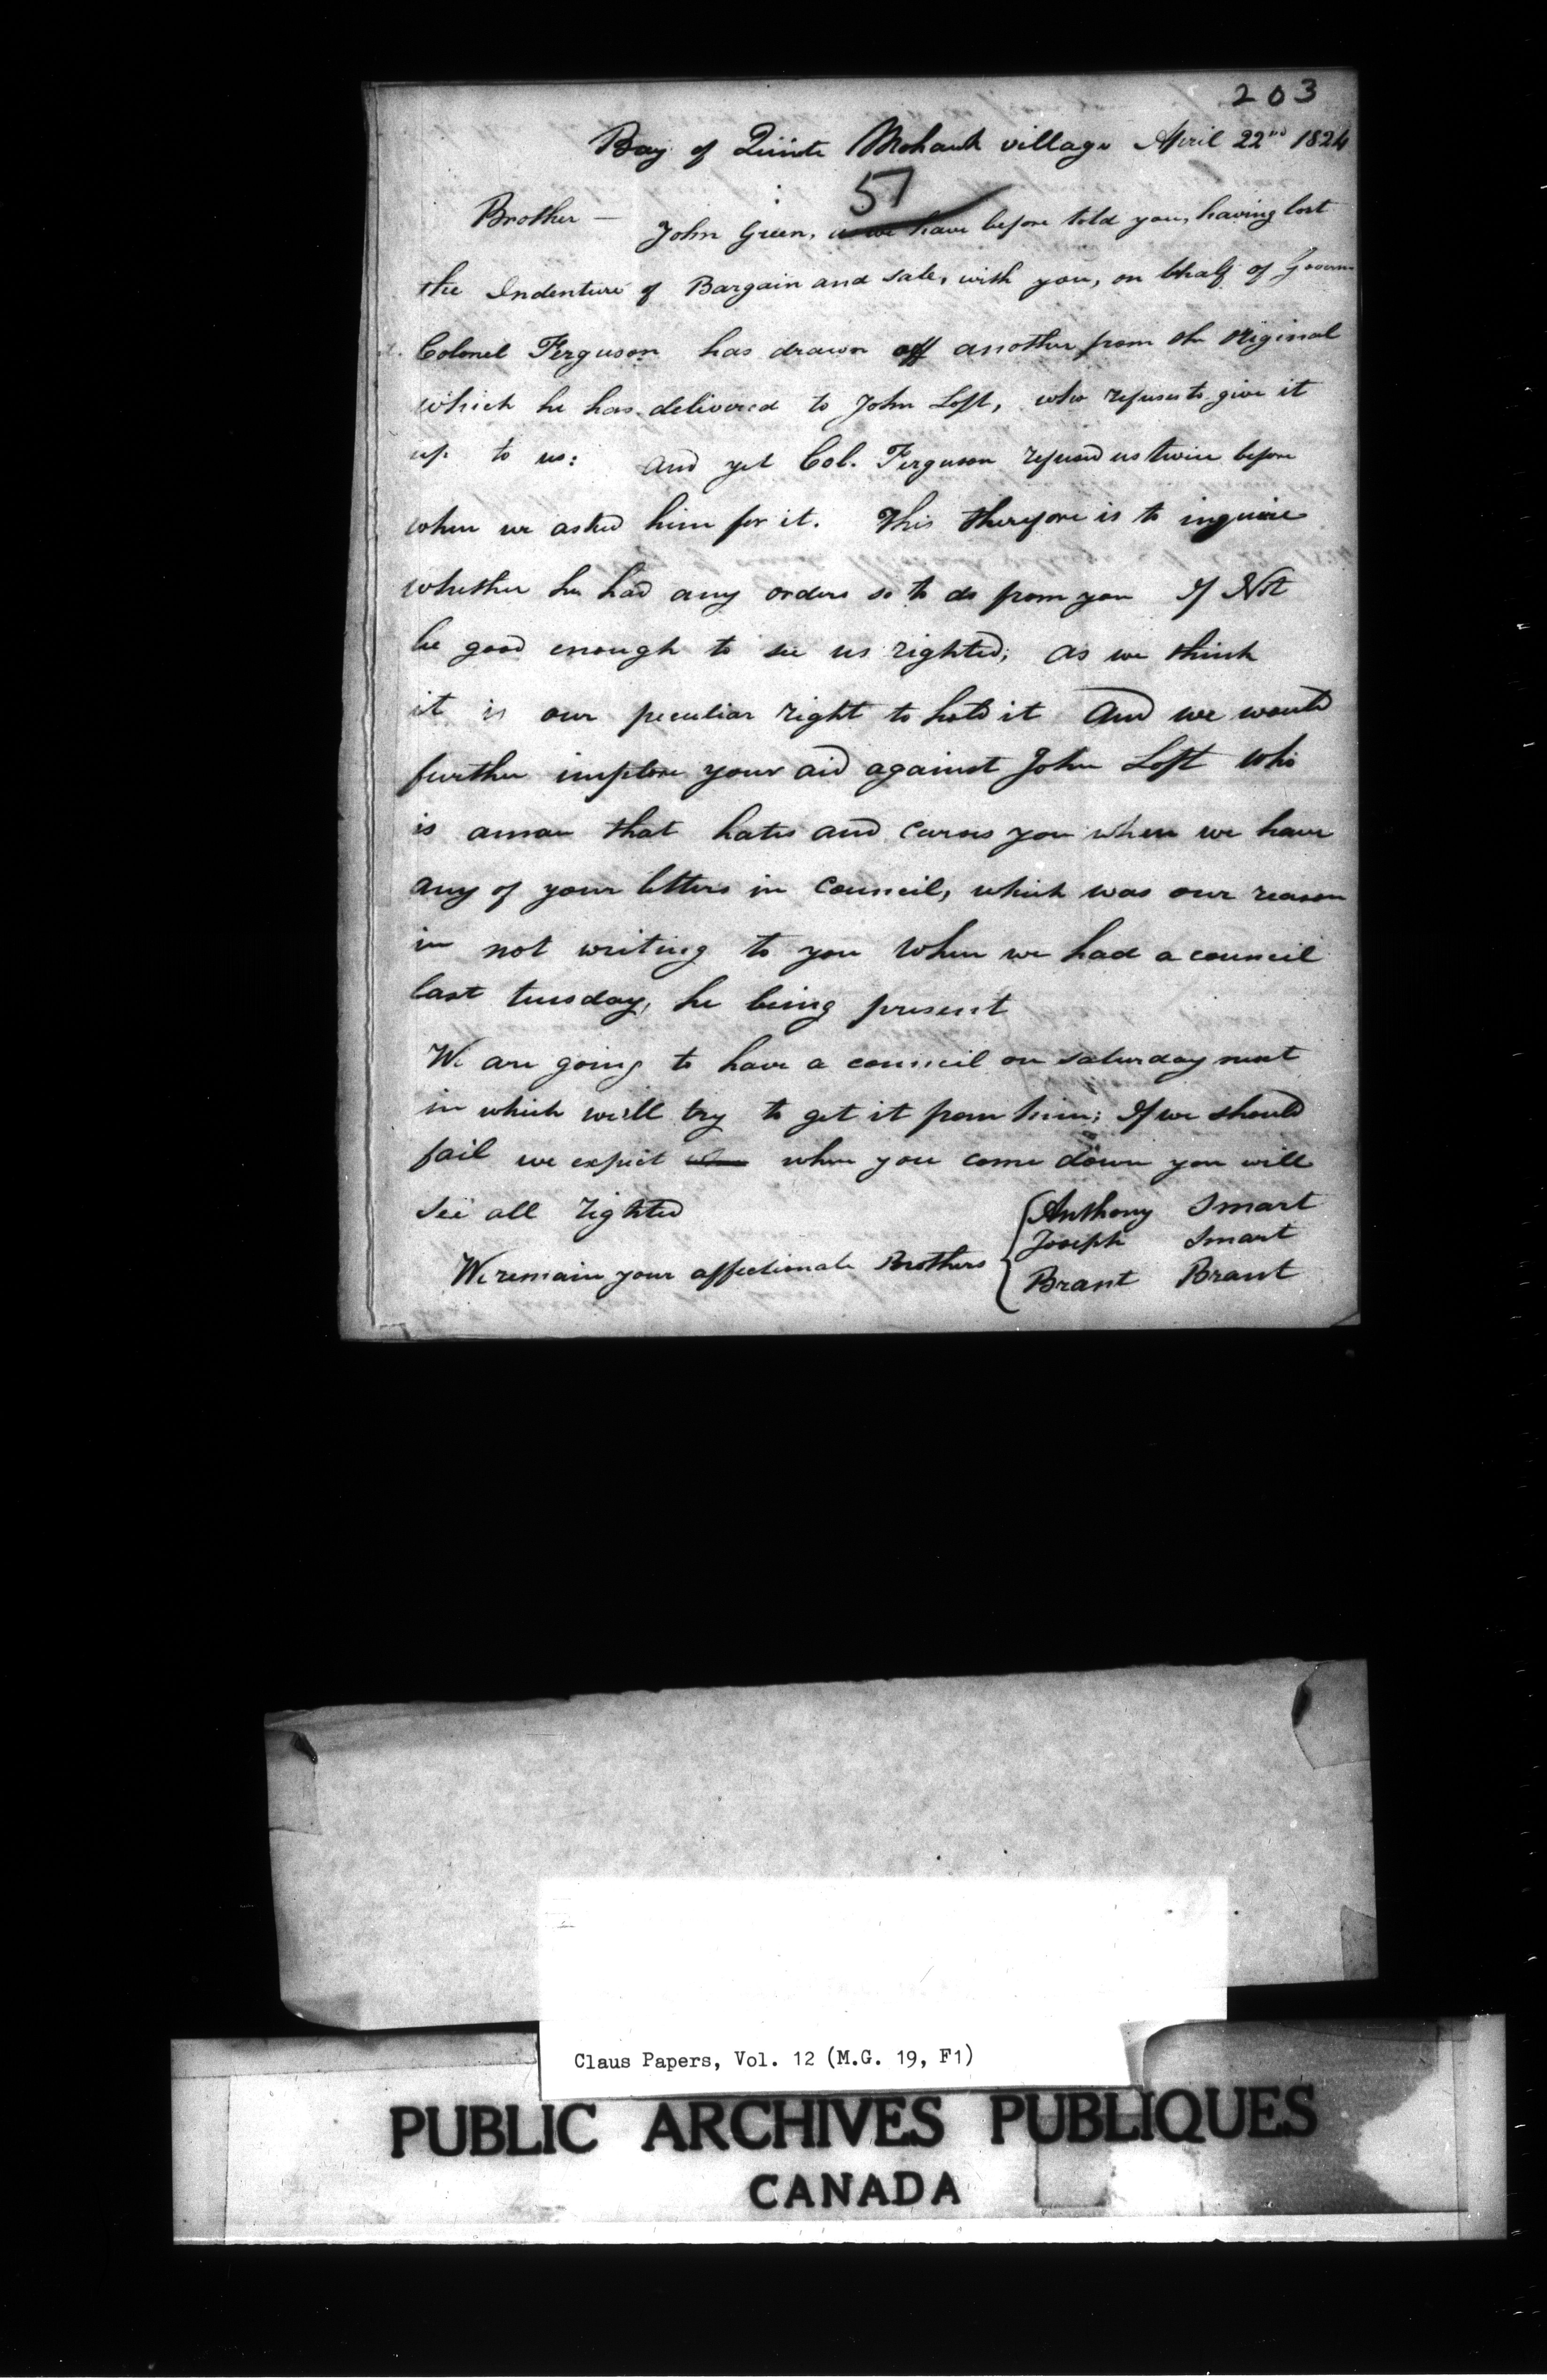 203
Bay of Quinte Mohawk village April 22nd 1824
57
Brother — John Green, as we have before told you, having lost
the Indenture of Bargain and sale, with you, on behalf of Govern
Colonel Ferguson has drawn off another from the original
which he has delivered to John Loft, who refuses to give it
up to us: and yet Col. Ferguson refused us twice before
when we asked him for it. This therefore is to inquire
whether he had any orders so to do from you If Not
be good enough to see us righted; as we think
it is our peculiar right to hold it And we would
further implore your aid against John Loft who
is aman that hates and curses you when we have
any of your letters in Council, which was our reason
in not writing to you when we had a council
last tuesday, he being present
We are going to have a council on saturday next
in which we'll try to get it from him; If we should
fail we expect when you come down you will
see all righted
We remain your affectionate Brothers
Anthony Smart
Joseph Smart
Brant Brant
Claus Papers, Vol. 12 (M.G. 19, F1)
PUBLIC ARCHIVES PUBLIQUES
CANADA